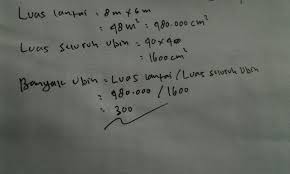 Luas lantai = 8m x 6m
= 48m² = 480.000 cm²
Luas seluruh ubin = 40 x 40
= 1600 cm²
Banyak ubin = Luas lantai / Luas seluruh ubin
= 480.000 / 1600
= 300